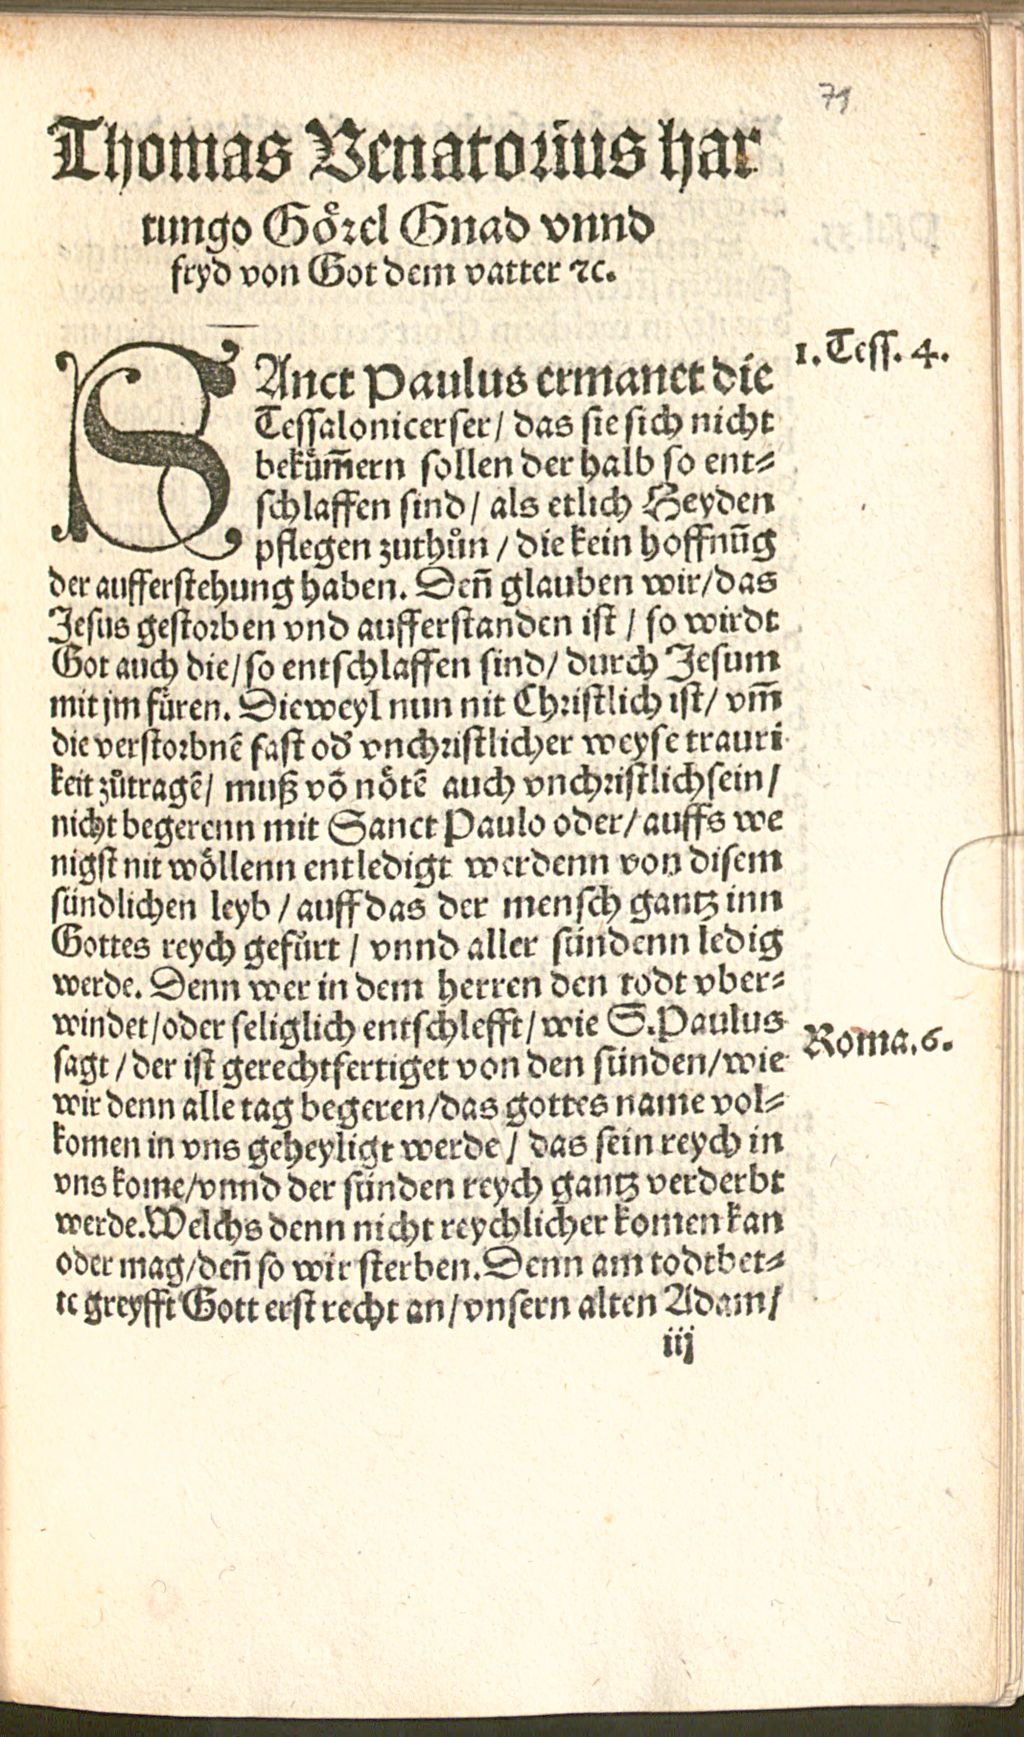 71
Thomas Venatorius har
tungo Görel Gnad vnnd
fryd von Got dem vatter ꝛc.
1. Tess. 4.
SAnct Paulus ermanet die
Tessalonicerser/ das sie sich nicht
bekům̃ern sollen der halb so ent⸗
schlaffen sind/ als etlich Heyden
pflegen zuthůn/ die kein hoffnũg
der aufferstehung haben. Deñ glauben wir/das
Jesus gestorben vnd aufferstanden ist/ so wirdt
Got auch die/so entschlaffen sind/ durch Jesum
mit jm füren. Dieweyl nun nit Christlich ist/ vm̃
die verstorbnẽ fast od̕ vnchristlicher weyse trauri
keit zůtragẽ/ muß võ nötẽ auch vnchristlich sein/
nicht begerenn mit Sanct Paulo oder/ auffs we
nigst nit wöllenn entledigt werdenn von disem
sündlichen leyb/ auff das der mensch gantz inn
Gottes reych gefürt/ vnnd aller sündenn ledig
werde. Denn wer in dem herren den todt vber⸗
windet/oder seliglich entschlefft/ wie S. Paulus
Roma. 6.
sagt/ der ist gerechtfertiget von den sünden/wie
wir denn alle tag begeren/das gottes name vol⸗
komen in vns geheyligt werde/ das sein reych in
vns kome/vnnd der sünden reych gantz verderbt
werde. Welchs denn nicht reychlicher komen kan
oder mag/deñ so wir sterben. Denn am todtbet⸗
te greyfft Gott erst recht an/vnsern alten Adam/
iij